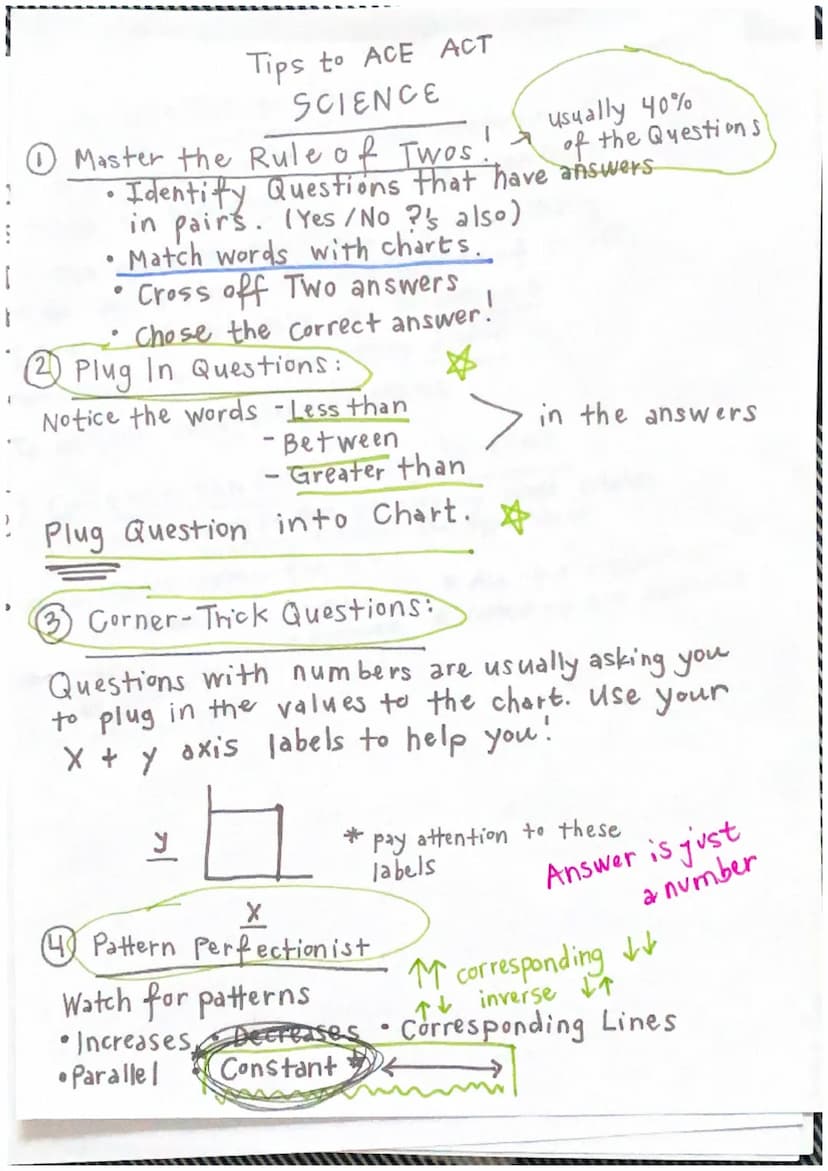 Tips to ACE ACT
SCIENCE
usually 40%
of the Questions
① Master the Rule of Twos! →
• Identify Questions that have answers
in pairs. (Yes/No ?'s also)
• Match words with charts.
• Cross off Two answers
• Chose the correct answer!
② Plug In Questions:
Notice the words - Less than
- Between
- Greater than
in the answers
Plug Question into Chart.
③ Corner-Trick Questions:
Questions with numbers are usually asking you
to plug in the values to the chart. Use your
X + y axis labels to help you!
y
* pay attention to these
labels
Answer is just
a number
X
④ Pattern Perfectionist
↑↑ corresponding ↓↓
↑↓ inverse ↓↑
Watch for patterns
• Increases • Decreases • Corresponding Lines
• Parallel • Constant